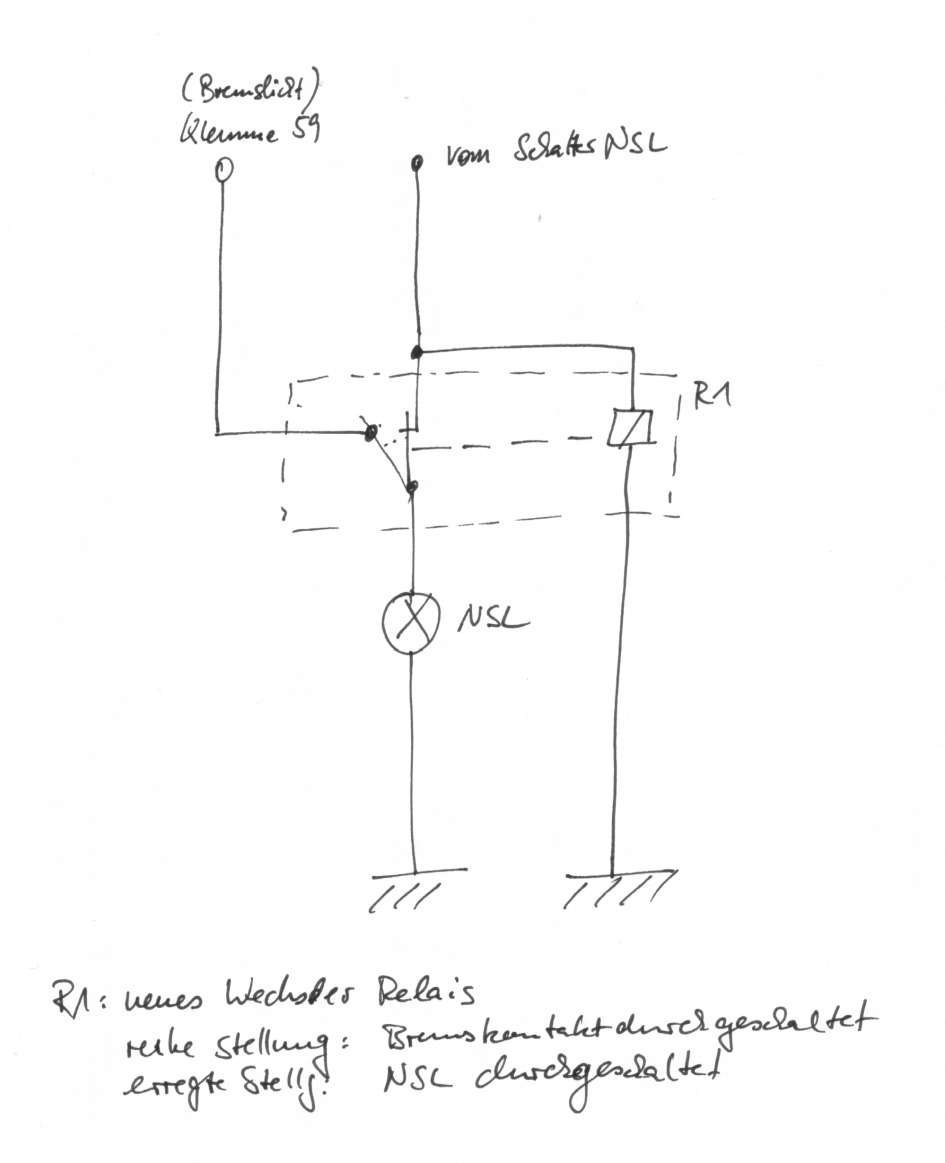 (Bremslicht)
Klemme 59
vom Schalter NSL
R1
NSL
R1: neues Wechsler Relais
ruhe Stellung: Bremskontakt durchgeschaltet
erregte Stellg: NSL durchgeschaltet